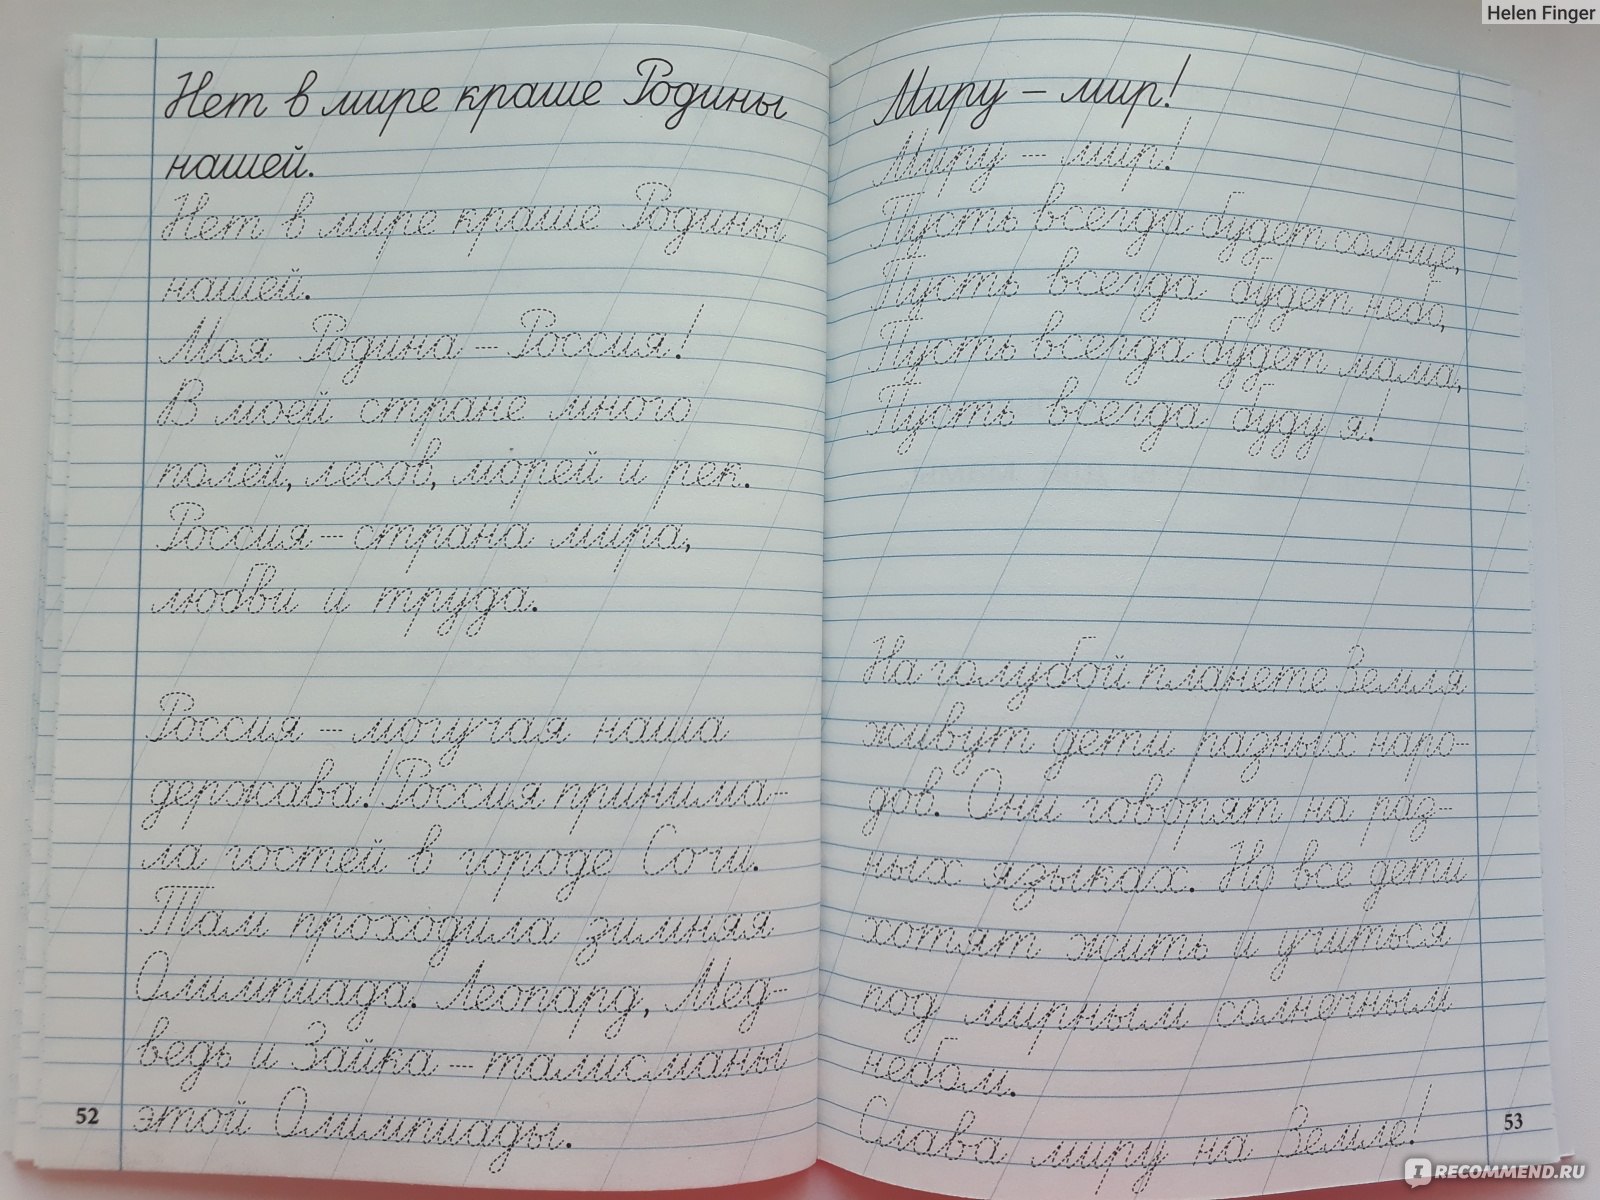 Helen Finger
Нет в мире краше Родины
нашей.
Нет в мире краше Родины
нашей.
Моя Родина – Россия!
В моей стране много
полей, лесов, морей и рек.
Россия – страна мира,
любви и труда.
Россия – могучая наша
держава! Россия принима-
ла гостей в городе Сочи.
Там проходила зимняя
Олимпиада. Леопард, Мед-
ведь и Зайка – талисманы
этой Олимпиады.
52
Миру – мир!
Миру – мир!
Пусть всегда будет солнце,
Пусть всегда будет небо,
Пусть всегда будет мама,
Пусть всегда буду я!
На голубой планете Земля
живут дети разных наро-
дов. Они говорят на раз-
ных языках. Но все дети
хотят жить и учиться
под мирным солнечным
небом.
Слава миру на Земле!
53
IRECOMMEND.RU